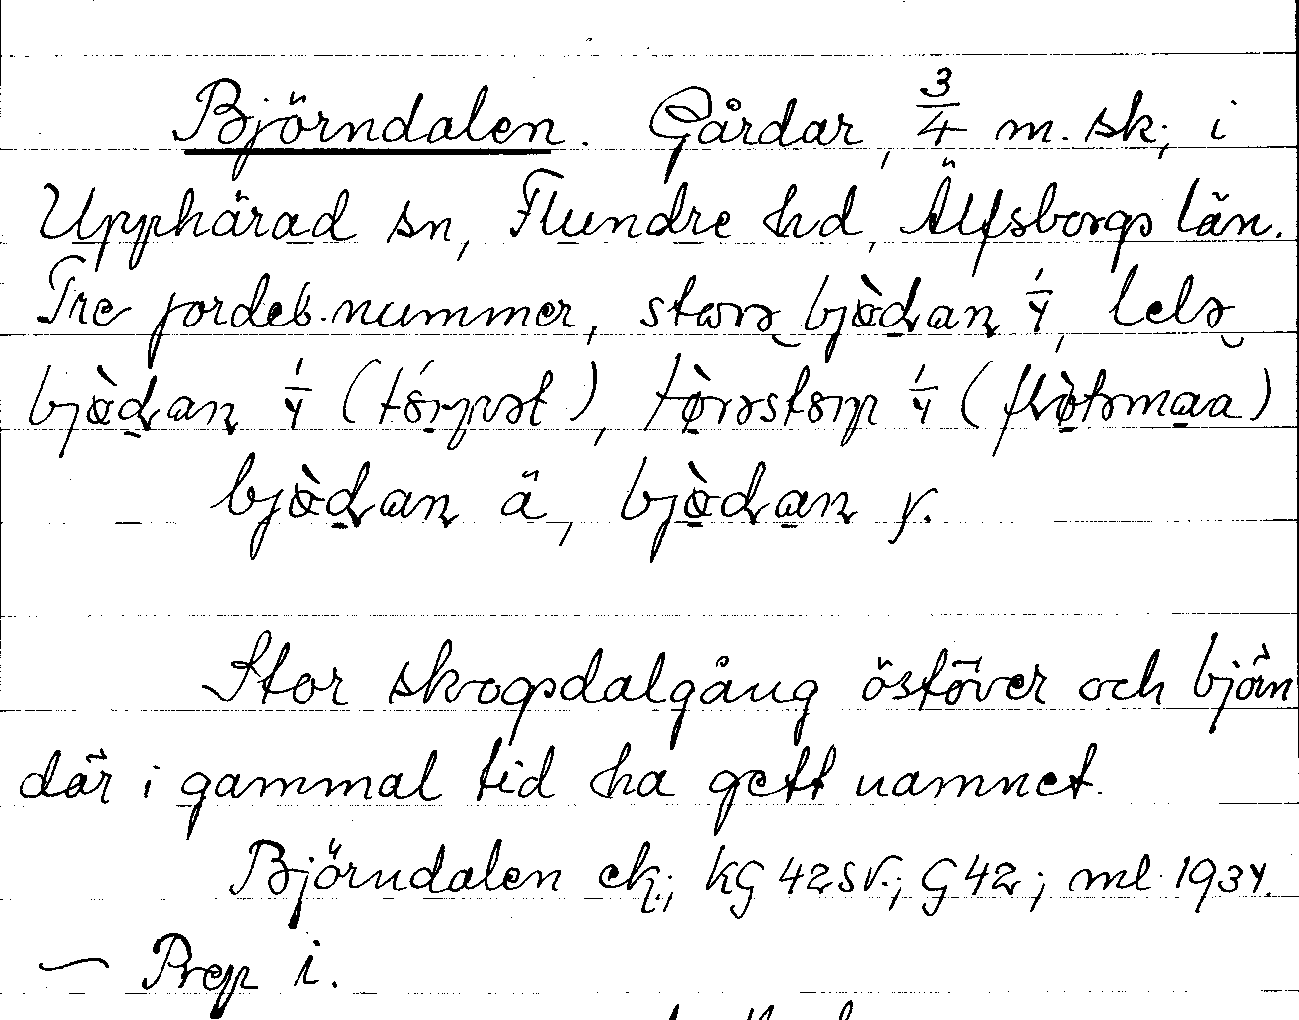 Björndalen. Gårdar, 3/4 m. sk; i
Upphärad sn, Flundre hd, Älfsborgs län.
Tre jordeb. nummer, storə bjɵ̀dan 1/4, lelə
bjɵ̀dan 1/4 (tórpət), tɵ̀rəstorp 1/4 (flɵ̀təmaa)
bjɵ̀dan ä, bjɵ̀dan y.
Stor skogsdalgång östöver och björn
där i gammal tid ha gett namnet.
Björndalen ek.; KG 42 SV.; G 42; ml 1934.
— Prep i.